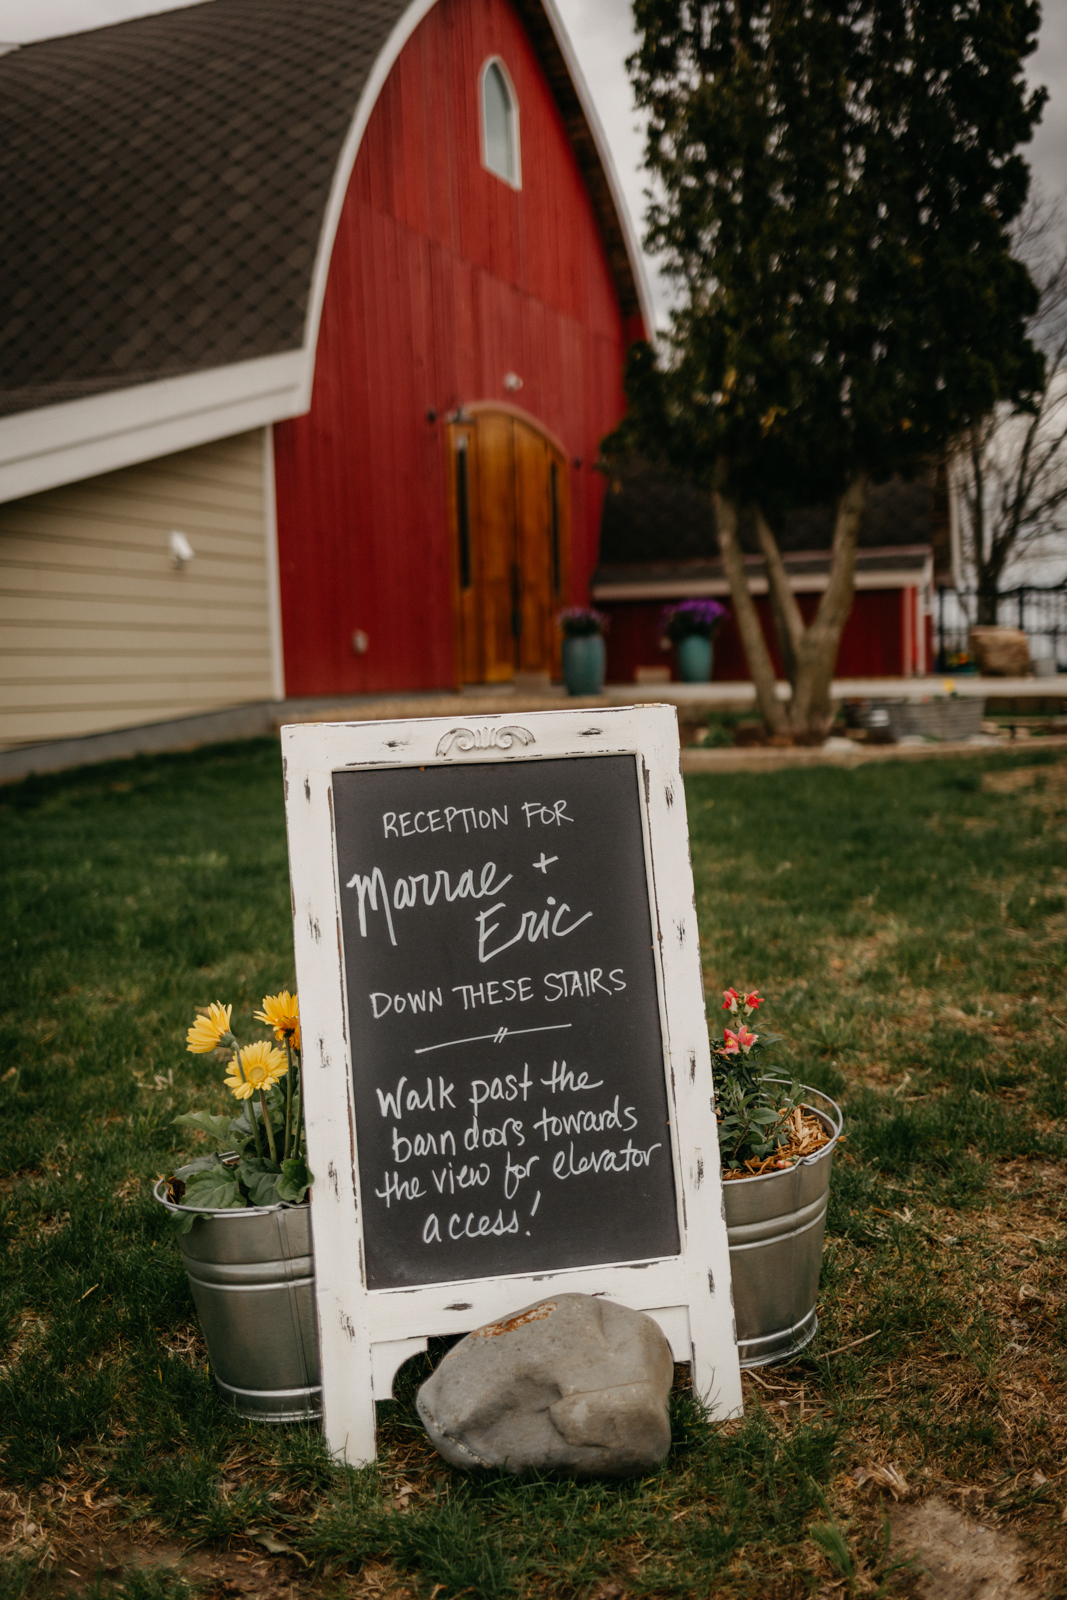 RECEPTION FOR
Marrae +
Eric
DOWN THESE STAIRS
Walk past the
barn doors towards
the view for elevator
access!